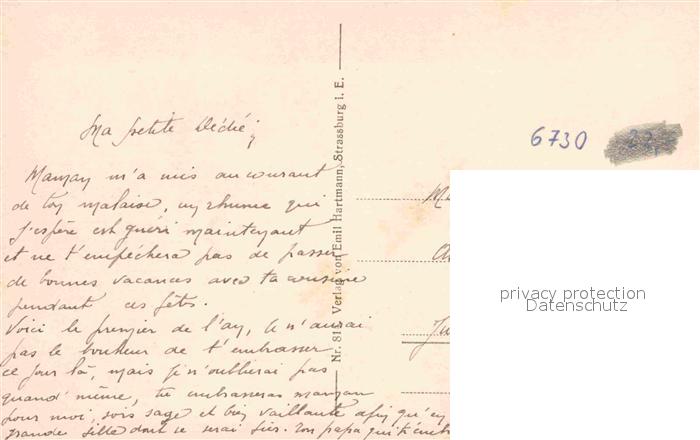 Ma petite Dédé,
Maman m'a mis au courant
de ton malaise, un rhume qui
j'espère est guéri maintenant
et ne t'empéchera pas de passer
de bonnes vacances avec ta cousine
pendant ces fêtes.
Voici le premier de l'an, je n'aurai
pas le bonheur de t'embrasser
ce jour là, mais je n'oublierai pas
quand même, tu embrasseras maman
pour moi, sois sage et bien vaillante afin qu'en
grande fille dont je serai fier. Ton papa qui t'emb
Nr. 81 Verlag von Emil Hartmann, Strassburg i. E.
6730
22,
privacy protection
Datenschutz